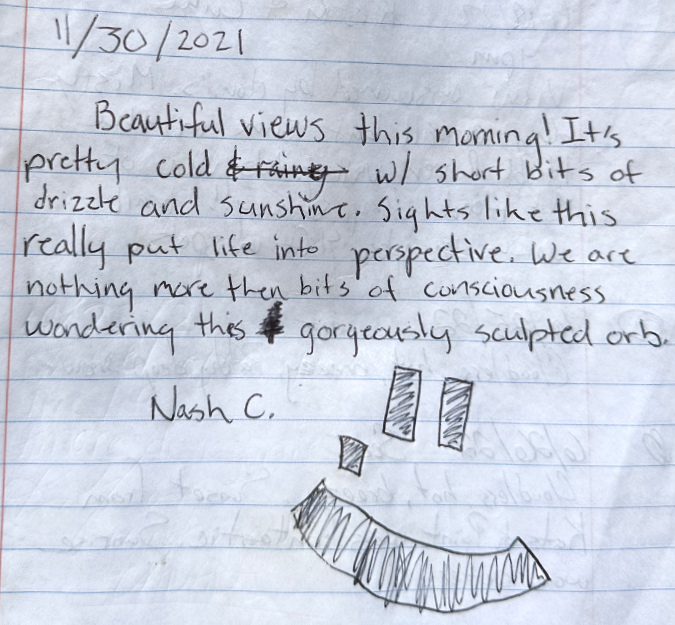 11/30/2021
Beautiful views this morning! It's
pretty cold & rainy w/ short bits of
drizzle and sunshine. Sights like this
really put life into perspective. We are
nothing more then bits of consciousness
wondering this gorgeously sculpted orb.
Nash C.